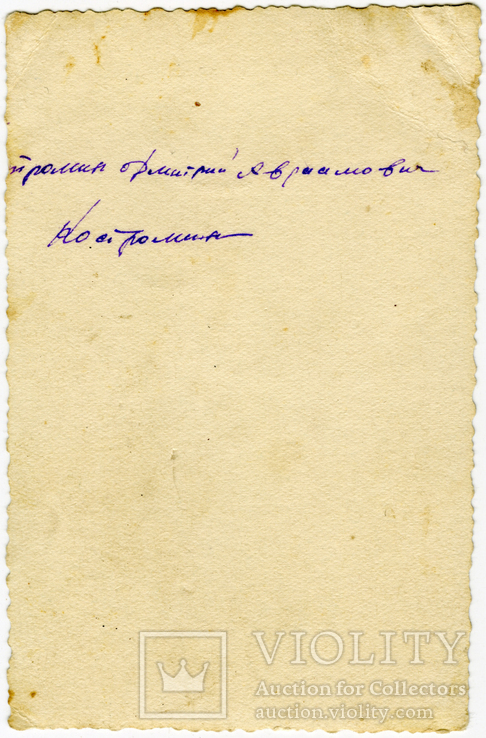 тромин Дмитрий Авраамович
Костромин
VIOLITY
Auction for Collectors
auction.violity.com